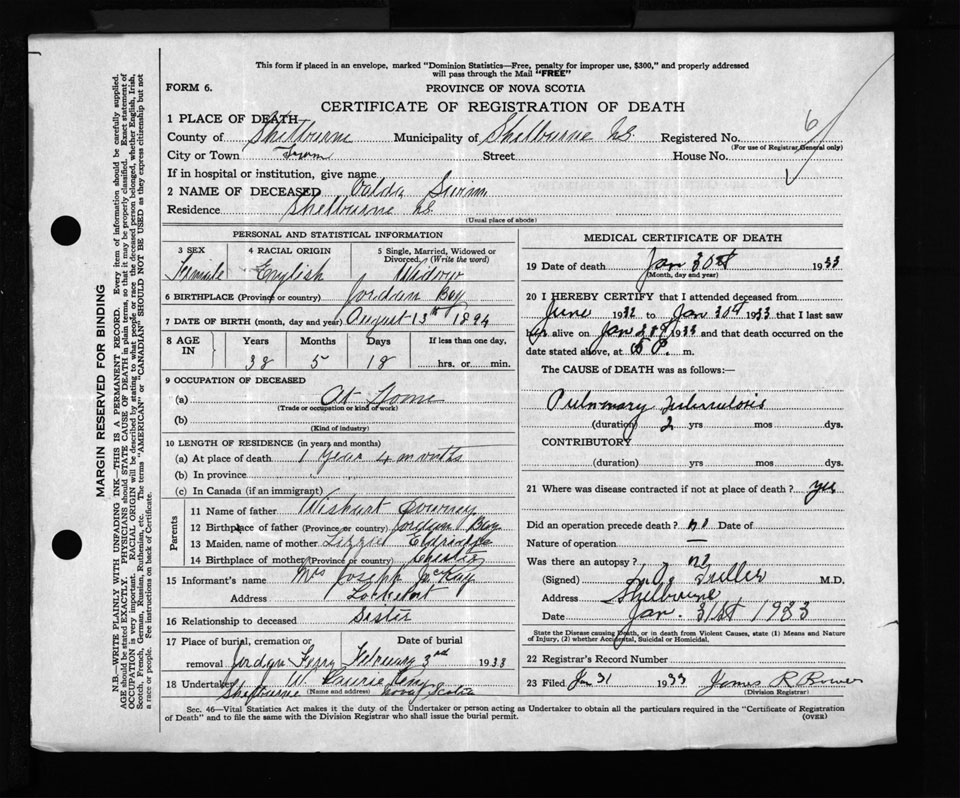 This form if placed in an envelope, marked "Dominion Statistics—Free, penalty for improper use, $300," and properly addressed
will pass through the Mail "FREE"
FORM 6.
PROVINCE OF NOVA SCOTIA
CERTIFICATE OF REGISTRATION OF DEATH
1 PLACE OF DEATH
County of Shelburne Municipality of Shelburne N.S. Registered No. 6
(For use of Registrar General only)
City or Town Town Street House No.
If in hospital or institution, give name
2 NAME OF DECEASED Valda
Residence Shelburne N.S.
(Usual place of abode)
PERSONAL AND STATISTICAL INFORMATION
3 SEX 4 RACIAL ORIGIN 5 Single, Married, Widowed or
Divorced. (Write the word)
Female English Widow
6 BIRTHPLACE (Province or country) Jordan Bay
7 DATE OF BIRTH (month, day and year) August 13th 1894
8 AGE IN Years Months Days If less than one day,
38 5 18 hrs. or min.
9 OCCUPATION OF DECEASED
(a) At Home
(Trade or occupation or kind of work)
(b)
(Kind of industry)
10 LENGTH OF RESIDENCE (in years and months)
(a) At place of death 1 year 4 months
(b) In province
(c) In Canada (if an immigrant)
Parents
11 Name of father Wishart
12 Birthplace of father (Province or country) Jordan Bay
13 Maiden name of mother Lizzie
14 Birthplace of mother (Province or country)
15 Informant's name Mrs Joseph McKay
Address Lockeport
16 Relationship to deceased Sister
17 Place of burial, cremation or Date of burial
removal Jordan Ferry February 3rd 1933
18 Undertaker W.
Shelburne (Name and address) Nova Scotia
MEDICAL CERTIFICATE OF DEATH
19 Date of death Jan 30st 1933
(Month, day and year)
20 I HEREBY CERTIFY that I attended deceased from
June 1932 to Jan 30st 1933 that I last saw
her alive on Jan 1933 and that death occurred on the
date stated above, at m.
The CAUSE of DEATH was as follows:—
Pulmonary Tuberculosis
(duration) 2 yrs mos dys.
CONTRIBUTORY
(duration) yrs mos dys.
21 Where was disease contracted if not at place of death? yes
Did an operation precede death? no Date of
Nature of operation —
Was there an autopsy? no
(Signed) Fuller M.D.
Address Shelburne
Date Jan. 31st 1933
State the Disease causing Death, or in death from Violent Causes, state (1) Means and Nature
of Injury, (2) whether Accidental, Suicidal or Homicidal.
22 Registrar's Record Number
23 Filed Jan 31 1933 James R Bower
(Division Registrar)
Sec. 46—Vital Statistics Act makes it the duty of the Undertaker or person acting as Undertaker to obtain all the particulars required in the "Certificate of Registration
of Death" and to file the same with the Division Registrar who shall issue the burial permit.
(OVER)
MARGIN RESERVED FOR BINDING
N.B.—WRITE PLAINLY WITH UNFADING INK—THIS IS A PERMANENT RECORD. Every item of information should be carefully supplied.
AGE should be stated EXACTLY. PHYSICIANS should STATE CAUSE OF DEATH in plain terms, so that it may be properly classified. Exact statement of
OCCUPATION is very important. RACIAL ORIGIN will be described by stating to what people or race the deceased person belonged, whether English, Irish,
Scotch, French, German, Russian, Ruthenian, etc. The terms "AMERICAN" or "CANADIAN" SHOULD NOT BE USED as they express citizenship but not
a race or people. See instructions on back of Certificate.